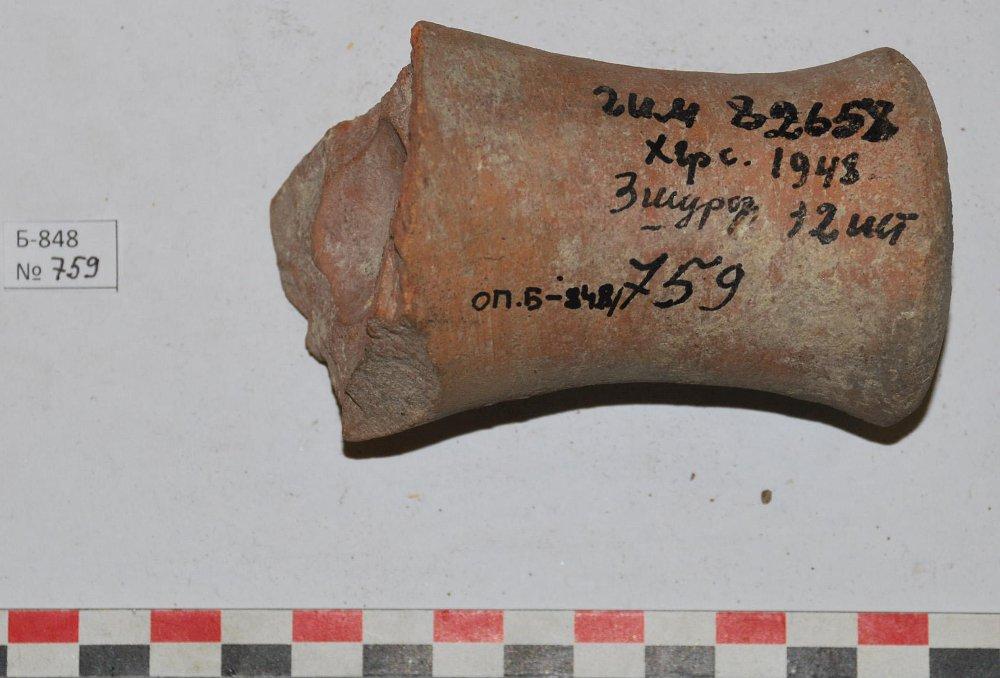 Б-848
№ 759
гим 82658
Херс. 1948
12 шт
оп.Б-848/759